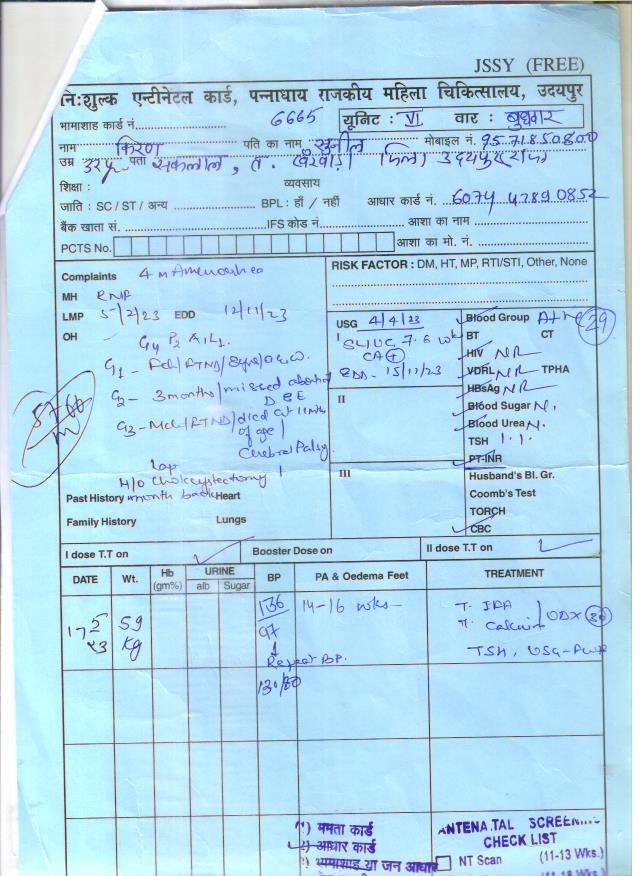 JSSY (FREE)
निःशुल्क एन्टीनेटल कार्ड, पन्नाधाय राजकीय महिला चिकित्सालय, उदयपुर
भामाशाह कार्ड नं. 6665 यूनिट : VI वार : बुधवार
नाम किरण पति का नाम सुनील मोबाइल नं. 9571850800
उम्र पता उदयपुर
शिक्षा : व्यवसाय
जाति : SC / ST / अन्य BPL : हाँ / नहीं आधार कार्ड नं. 6074 4789 0852
बैंक खाता सं. IFS कोड नं. आशा का नाम
PCTS No. आशा का मो. नं.
Complaints 4 m Amenorrhea
MH RNF
LMP 5/2/23 EDD 12/11/23
OH - G4 P2 A1 L1
G1 - Fch/FTND/
G2 - 3 months/missed abortion
D & E
G3 - Mch/FTND/died at 11 mths
of age/
Cerebral Palsy
Lap
H/O Cholecystectomy 1
Past History month back Heart
Family History Lungs
RISK FACTOR : DM, HT, MP, RTI/STI, Other, None
USG 4/4/23
I SLIUG 7.6 wk
CA +
EDD - 15/11/23
II
III
Blood Group A+ve 29
BT CT
HIV NR
VDRL NR TPHA
HBsAg NR
Blood Sugar N.
Blood Urea N.
TSH 1.1.
PT-INR
Husband's Bl. Gr.
Coomb's Test
TORCH
CBC
I dose T.T on Booster Dose on II dose T.T on
DATE Wt. Hb (gm%) URINE alb Sugar BP PA & Oedema Feet TREATMENT
17/5/23 59 kg 136/97 14-16 wks
Repeat BP.
130/80
T. IFA
T. Calcium ODX 30
TSH, USG-
1) ममता कार्ड
2) आधार कार्ड
3) भामाशाह या जन आधार
ANTENATAL SCREENING
CHECK LIST
NT Scan (11-13 Wks.)